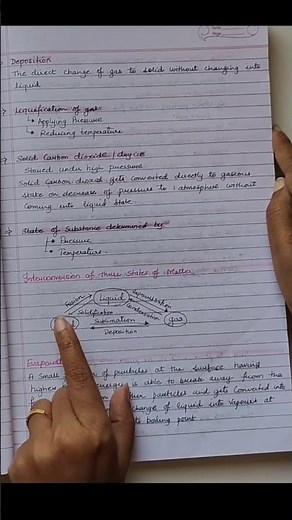 Deposition
The direct change of gas to solid without changing into
liquid
Liquification of gas
Applying Pressure
Reducing temperature
Solid Carbon dioxide / dry ice
Stored under high pressure
Solid Carbon dioxide gets converted directly to gaseous
state on decrease of pressure to 1 atmosphere without
Coming into liquid state
State of Substance determined by
Pressure
Temperature
Interconversion of Three States of Matter
Liquid
Fusion
Vapourisation
Solidification
Condensation
Sublimation
gas
Deposition
A Small of particles at the surface having
higher is able to break away from the
particles and gets converted into
change of liquid into vapours at
boiling point